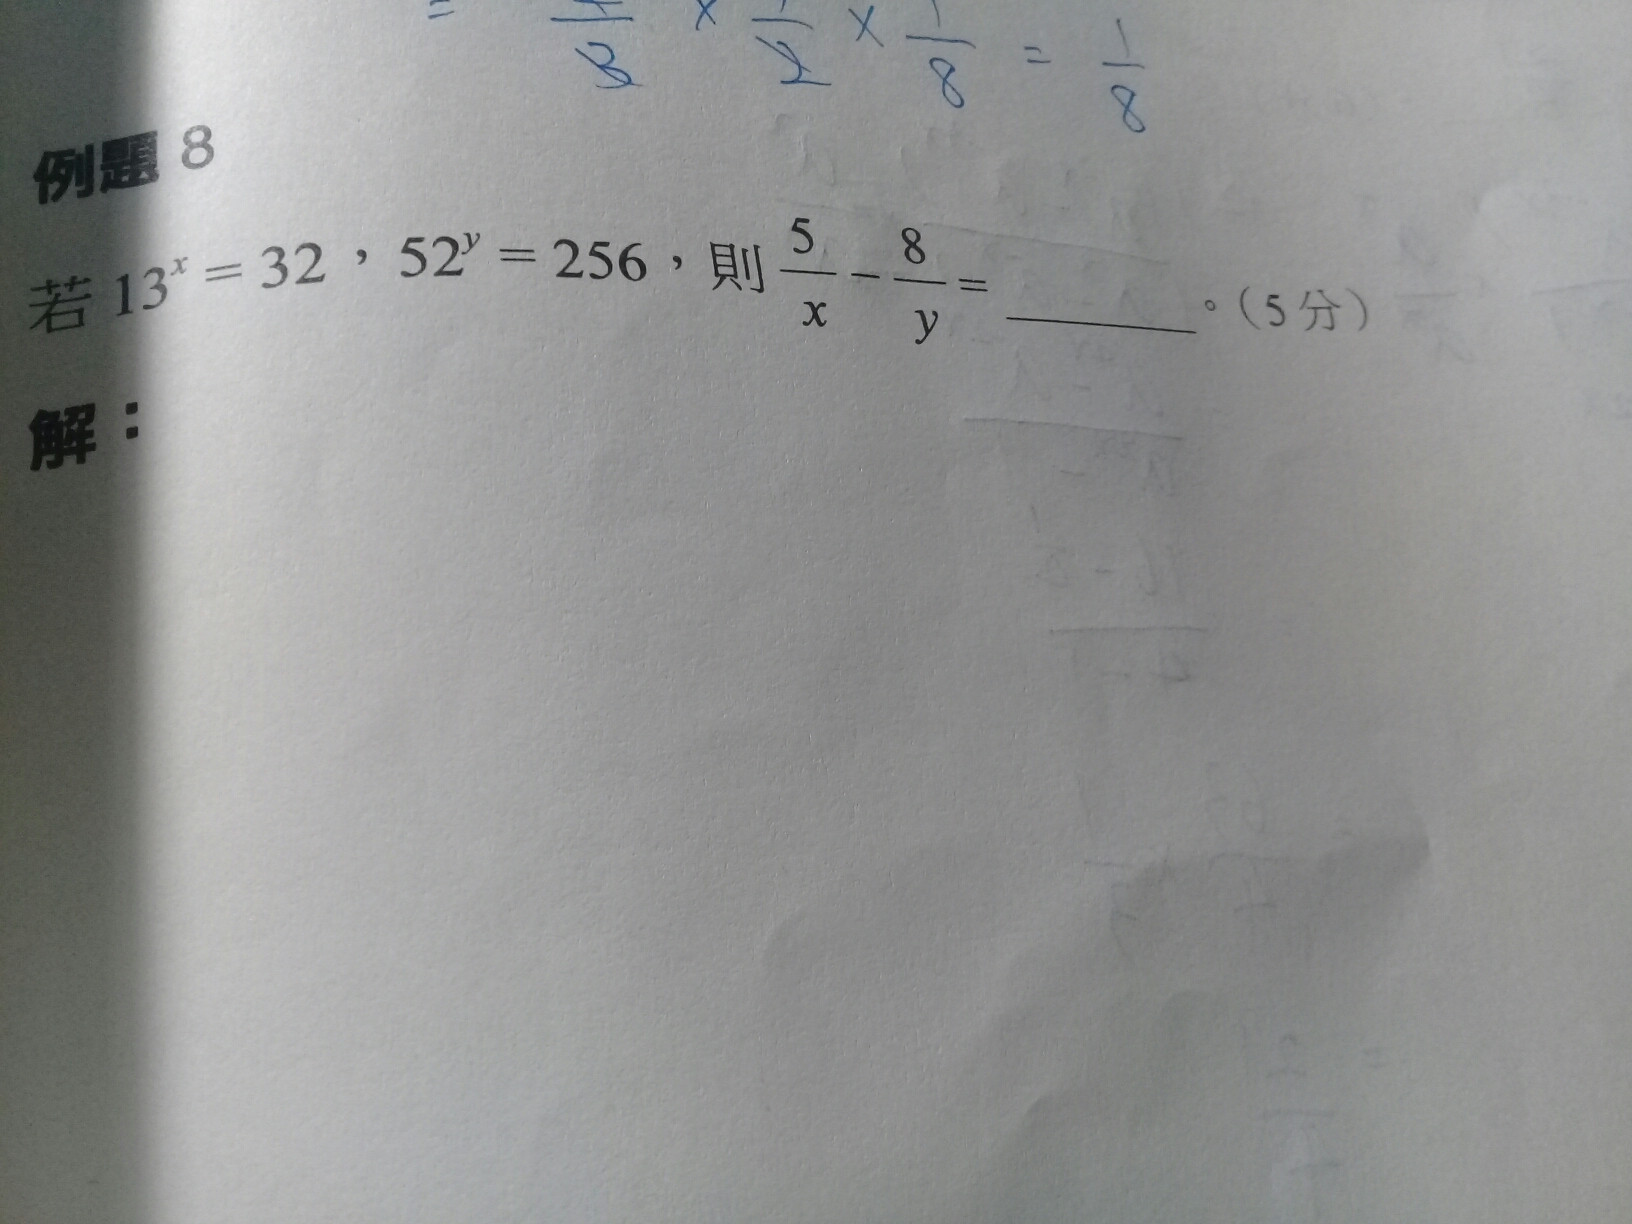 = 1/3 × 1/2 × 1/8 = 1/8
例題 8
若 13^x = 32，52^y = 256，則 5/x − 8/y = ______。(5分)
解：